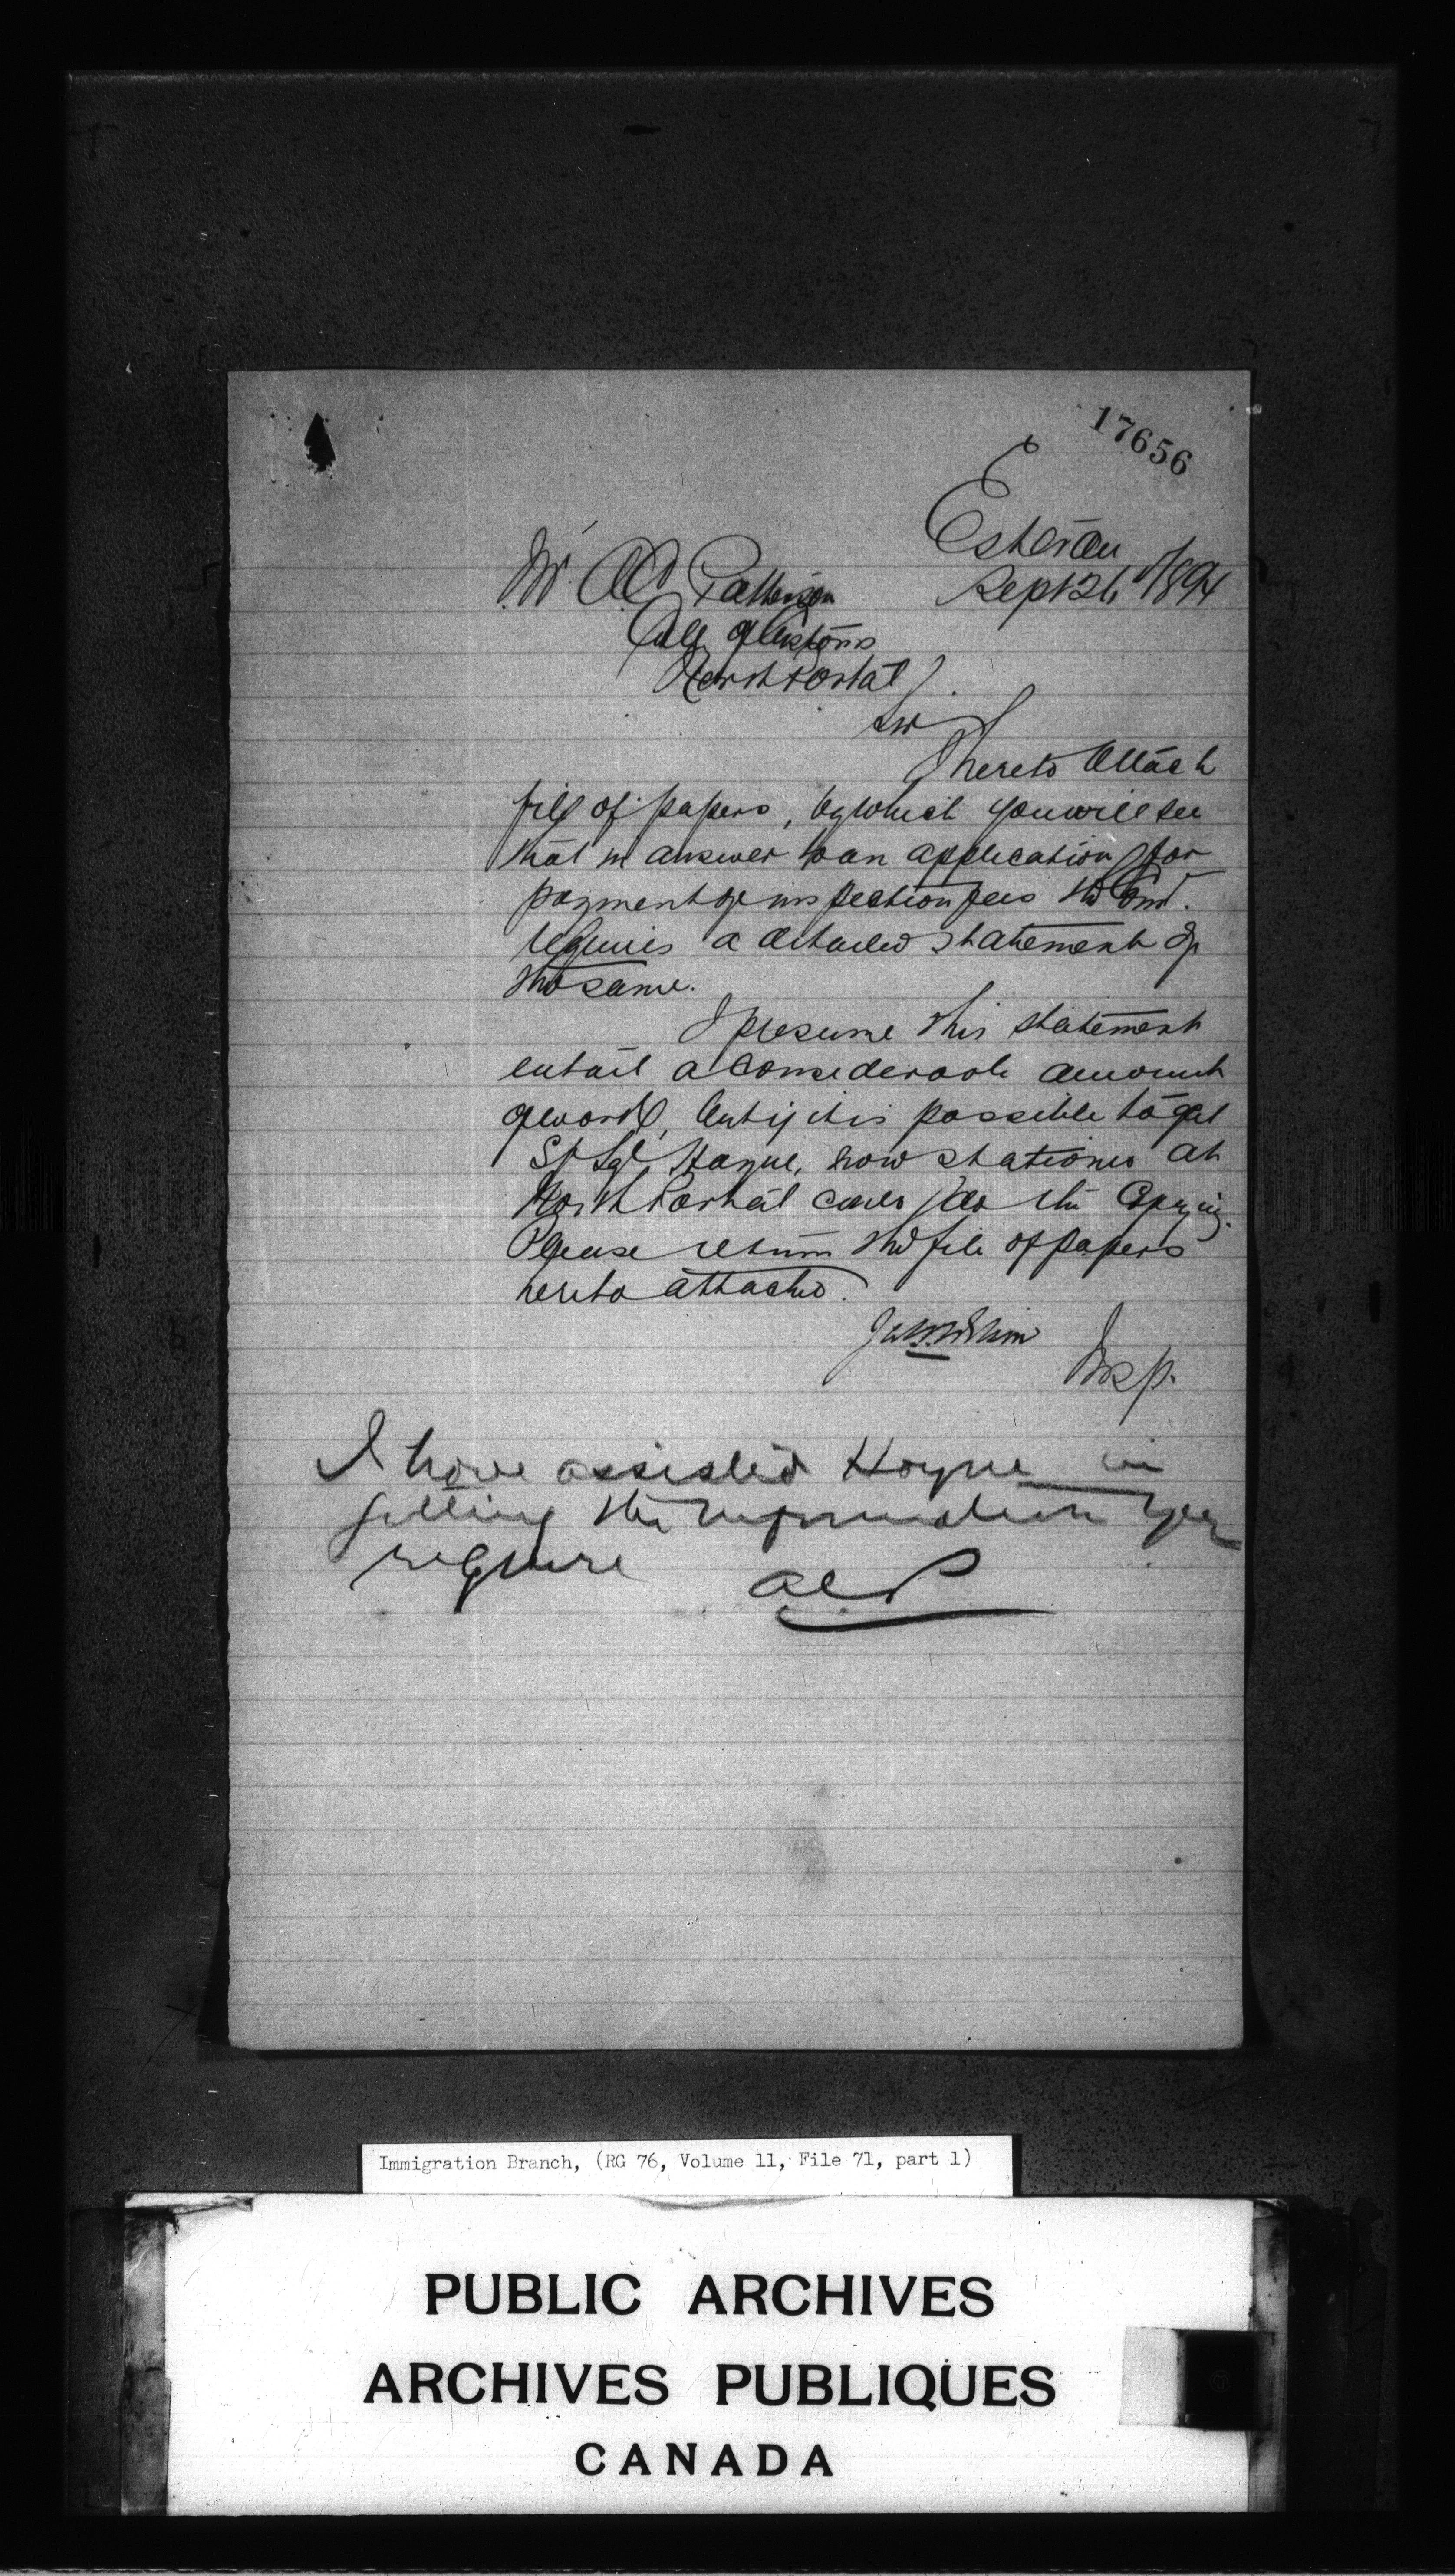 17656
Estevan
Sept 26 /1894
Mr. A C Patterson
Coll of Customs
North Portal
Sir
I hereto Attach
file of papers, by which you will see
that in answer to an application for
payment of inspection fees the Govt.
requires a detailed statement of
the same.
I presume this statement
entail a considerable amount
of work, but if it is possible to get
St Sgt Hayne, now stationed at
North Portal could do the Copying.
Please return the file of papers
hereto attached.
Insp.
I have assisted Hayne in
getting the information you
require
ACP
Immigration Branch, (RG 76, Volume 11, File 71, part 1)
PUBLIC ARCHIVES
ARCHIVES PUBLIQUES
CANADA